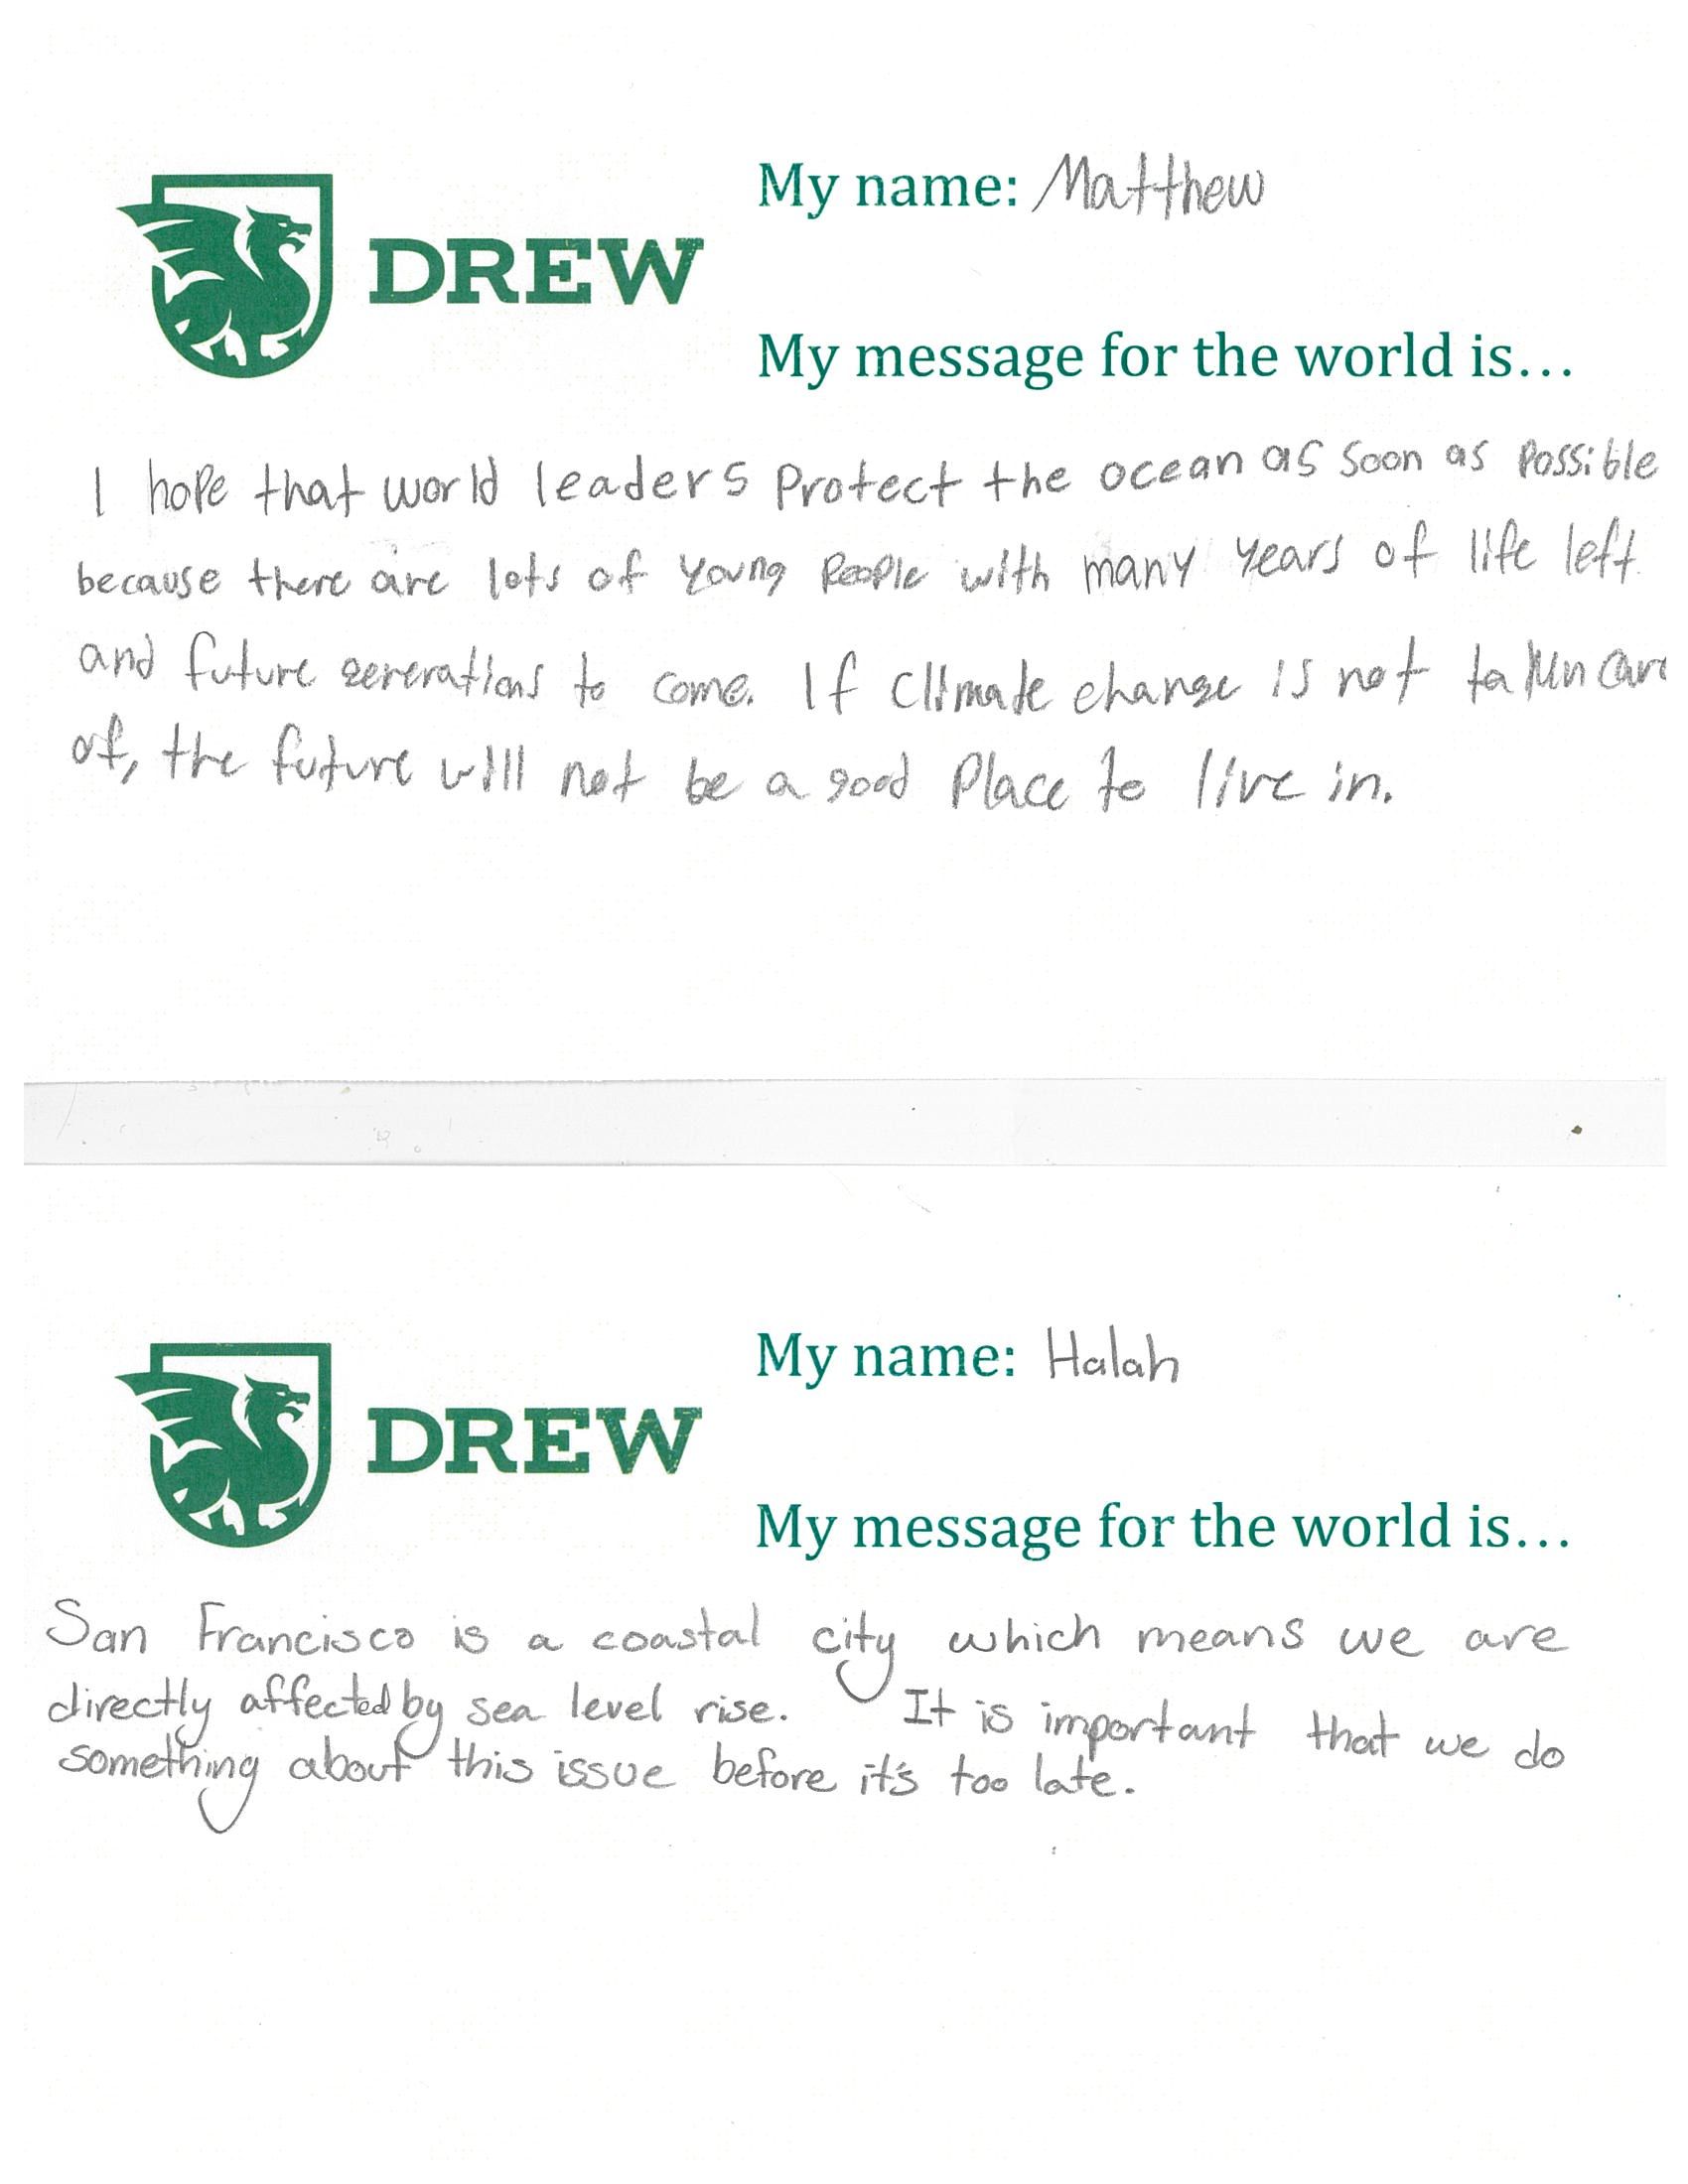 My name: Matthew
DREW
My message for the world is...
I hope that world leaders protect the ocean as soon as possible
because there are lots of young people with many years of life left
and future generations to come. If climate change is not takun care
of, the future will not be a good place to live in.
My name: Halah
DREW
My message for the world is...
San Francisco is a coastal city which means we are
directly affected by sea level rise. It is important that we do
something about this issue before it's too late.